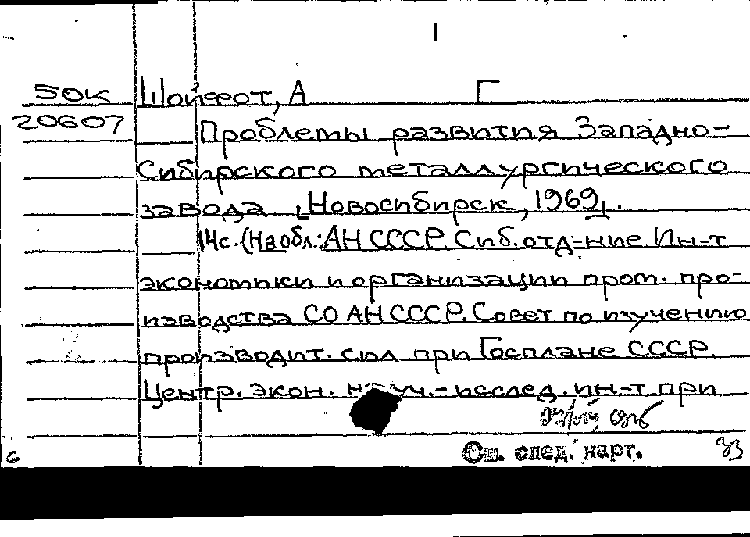 I
50К Шойфот, А Г
20607 Проблемы развития Западно-
Сибирского металлургического
завода [Новосибирск, 1969].
14с. (На обл.: АН СССР. Сиб. отд-ние. Ин-т
экономики и организации пром. про-
изводства СО АН СССР. Совет по изучению
производит. сил при Госплане СССР.
Центр. экон. науч.-исслед. ин-т при
См. след. карт. 33
6